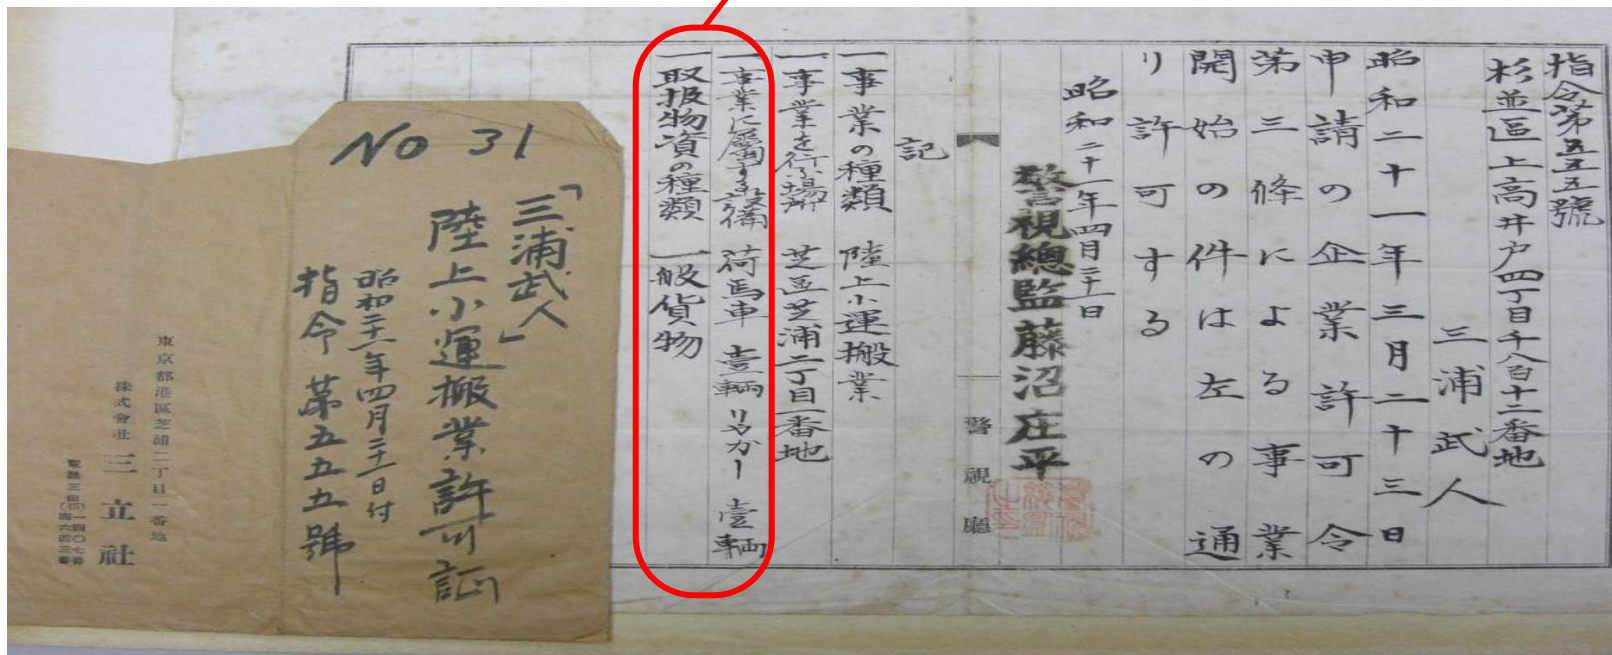 指令第五五五號
杉並區上高井戸四丁目千八百十二番地
三浦武人
昭和二十一年三月二十三日
申請の企業許可令
第三條による事業
開始の件は左の通
り許可する
昭和二十一年四月二十二日
警視總監藤沼庄平
警視廳
記
一事業の種類 陸上小運搬業
一事業を行ふ場所 芝區芝浦二丁目一番地
一事業に屬する設備 荷馬車 壹輌 リヤカー 壹輌
一取扱物資の種類 一般貨物
NO 31
「三浦武人」
陸上小運搬業許可証
昭和二十一年四月二十二日付
指令第五五五號
東京都港區芝浦二丁目一番地
株式會社 三立社